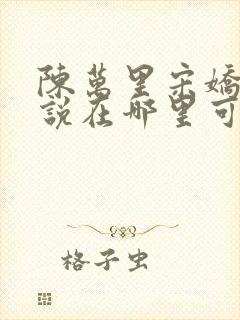 陳萬里宋嬌
說在哪里可
格子虫